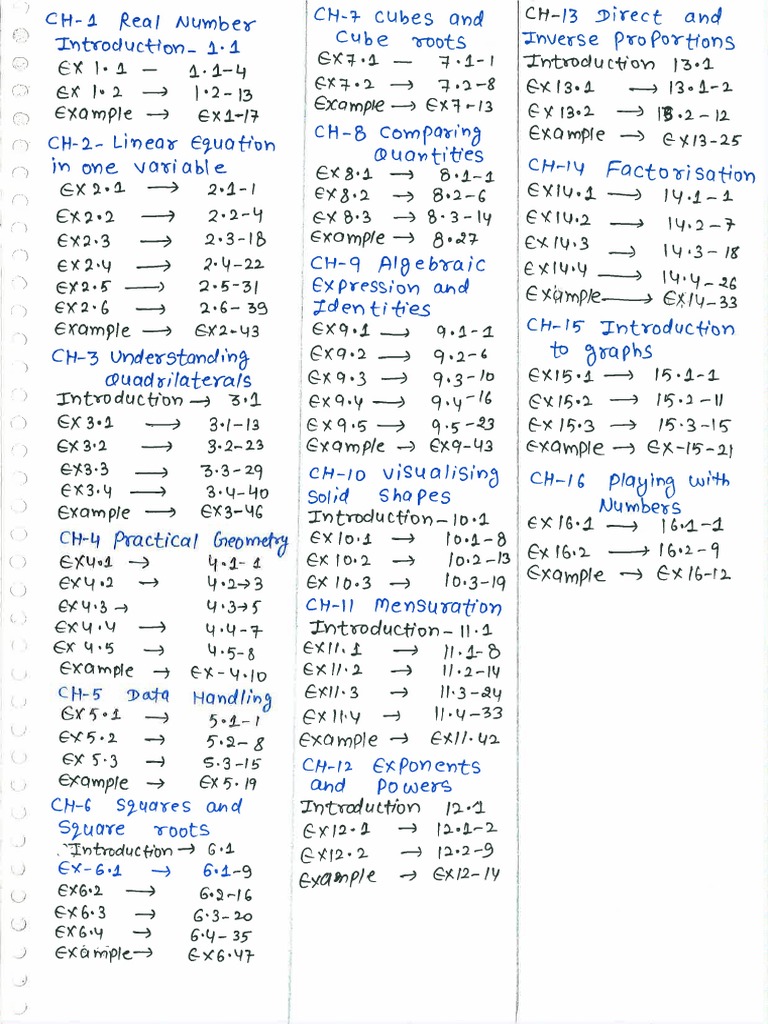 CH-1 Real Number
Introduction- 1.1
EX 1.1 — 1.1-4
EX 1.2 → 1.2-13
Example → EX1-17
CH-2- Linear Equation
in one variable
EX 2.1 → 2.1-1
EX2.2 → 2.2-4
EX2.3 → 2.3-18
EX2.4 → 2.4-22
EX2.5 → 2.5-31
EX2.6 → 2.6-39
Example → EX2-43
CH-3 Understanding
Quadrilaterals
Introduction → 3.1
EX3.1 → 3.1-13
EX3.2 → 3.2-23
EX3.3 → 3.3-29
EX3.4 → 3.4-40
Example → EX3-46
CH-4 Practical Geometry
EX4.1 → 4.1-1
EX4.2 → 4.2→3
EX4.3 → 4.3→5
EX4.4 → 4.4-7
EX 4.5 → 4.5-8
Example → EX-4.10
CH-5 Data Handling
EX5.1 → 5.1-1
EX5.2 → 5.2-8
EX 5.3 → 5.3-15
Example → EX5.19
CH-6 Squares and
Square roots
Introduction → 6.1
EX-6.1 → 6.1-9
EX6.2 → 6.2-16
EX6.3 → 6.3-20
EX6.4 → 6.4-35
Example → EX6.47
CH-7 Cubes and
Cube roots
EX7.1 — 7.1-1
EX7.2 → 7.2-8
Example → EX7-13
CH-8 Comparing
Quantities
EX8.1 → 8.1-1
EX8.2 → 8.2-6
EX 8.3 → 8.3-14
Example → 8.27
CH-9 Algebraic
Expression and
Identities
EX9.1 → 9.1-1
EX9.2 → 9.2-6
EX9.3 → 9.3-10
EX9.4 → 9.4-16
EX9.5 → 9.5-23
Example → EX9-43
CH-10 Visualising
Solid Shapes
Introduction-10.1
EX10.1 → 10.1-8
EX10.2 → 10.2-13
EX10.3 → 10.3-19
CH-11 Mensuration
Introduction-11.1
EX11.1 → 11.1-8
EX11.2 → 11.2-14
EX11.3 → 11.3-24
EX11.4 → 11.4-33
Example → EX11.42
CH-12 Exponents
and Powers
Introduction 12.1
EX12.1 → 12.1-2
EX12.2 → 12.2-9
Example → EX12-14
CH-13 Direct and
Inverse Proportions
Introduction 13.1
EX13.1 → 13.1-2
EX13.2 → 13.2-12
Example → EX13-25
CH-14 Factorisation
EX14.1 → 14.1-1
EX14.2 → 14.2-7
EX14.3 → 14.3-18
EX14.4 → 14.4-26
Example → EX14-33
CH-15 Introduction
to graphs
EX15.1 → 15.1-1
EX15.2 → 15.2-11
EX15.3 → 15.3-15
Example → EX-15-21
CH-16 Playing with
Numbers
EX16.1 → 16.1-1
EX16.2 → 16.2-9
Example → EX16-12